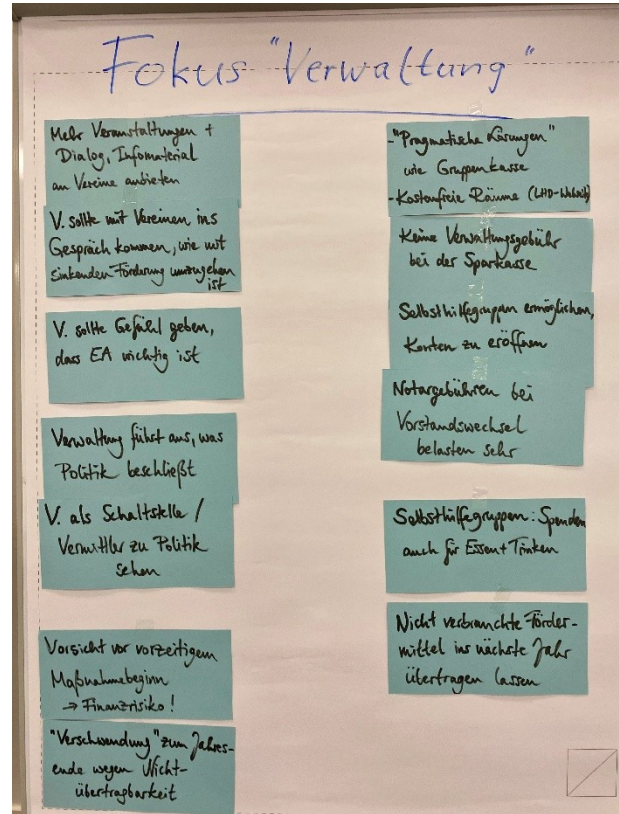 Fokus "Verwaltung"
Mehr Veranstaltungen +
Dialog, Infomaterial
an Vereine anbieten
V. sollte mit Vereinen ins
Gespräch kommen, wie mit
sinkenden Förderung umzugehen
ist
V. sollte Gefühl geben,
dass EA wichtig ist
Verwaltung führt aus, was
Politik beschließt
V. als Schaltstelle /
Vermittler zu Politik
sehen
Vorsicht vor vorzeitigem
Maßnahmebeginn
→ Finanzrisiko!
"Verschwendung" zum Jahres-
ende wegen Nicht-
übertragbarkeit
- "Pragmatische Lösungen"
wie Gruppenkasse
- Kostenfreie Räume (LHD-Website)
Keine Verwaltungsgebühr
bei der Sparkasse
Selbsthilfegruppen ermöglichen,
Konten zu eröffnen
Notargebühren bei
Vorstandswechsel
belasten sehr
Selbsthilfegruppen: Spenden
auch für Essen + Trinken
Nicht verbrauchte Förder-
mittel ins nächste Jahr
übertragen lassen